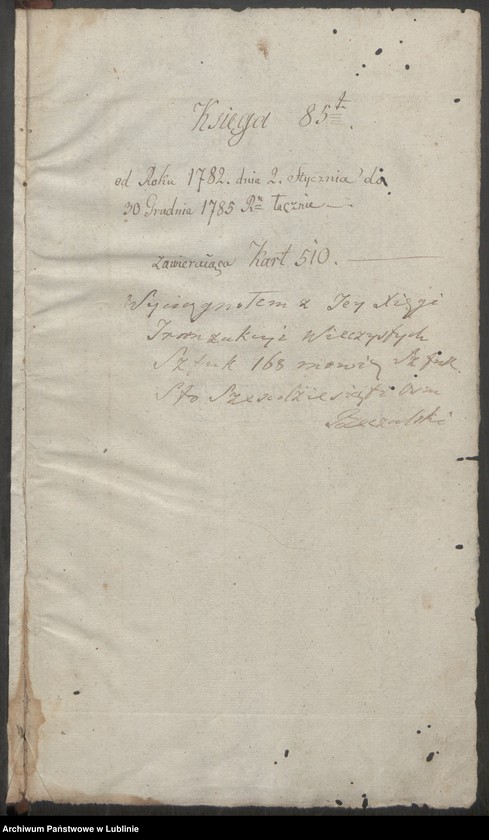 Księga 85ta.
od Roku 1782. dnia 2. Stycznia do
30 Grudnia 1785 Ru łącznie
zawieraiąca Kart 510.
Wyciągnołem z Jey Xięgi
Tranzakcyi Wieczystych
Sztuk 168 mowię Sztuk
Sto Sześcdziesiąt Osm
Archiwum Państwowe w Lublinie